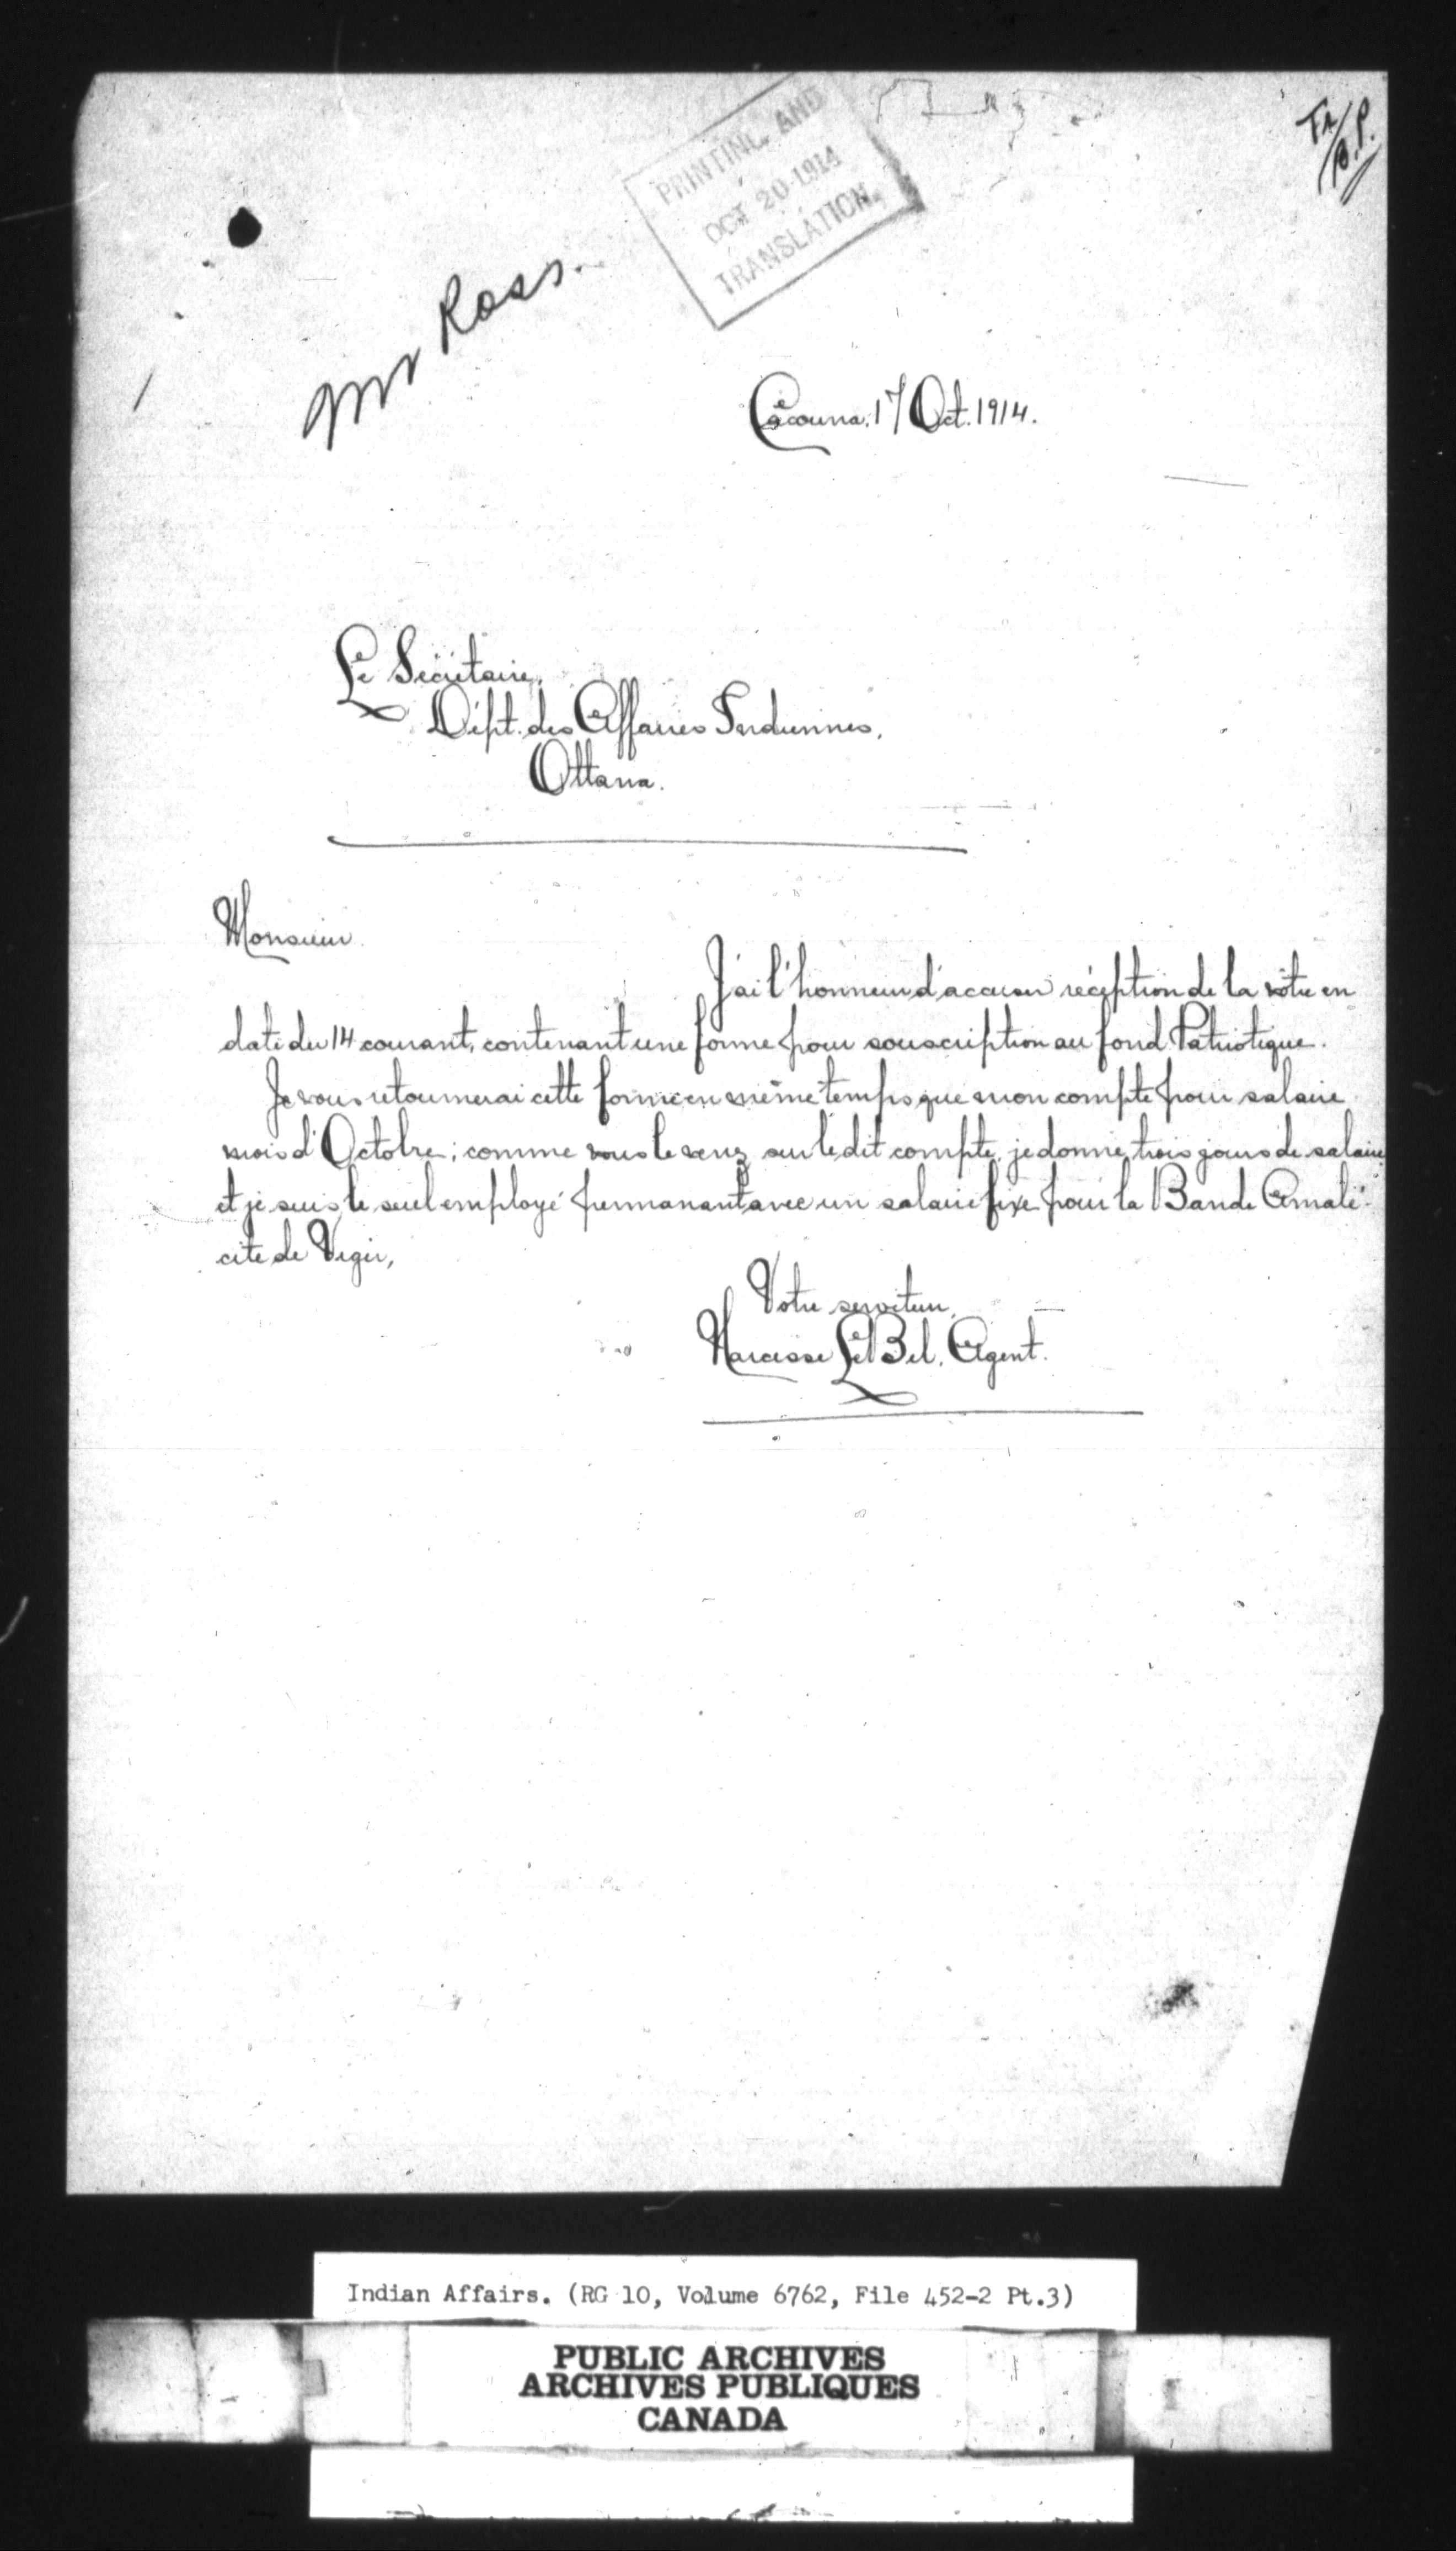 Tr/B.P.
PRINTING AND
OCT 20 1914
TRANSLATION.
Mr Ross.
Cacouna, 17 Oct. 1914.
Le Secrétaire,
Dépt. des Affaires Indiennes,
Ottawa.
Monsieur
J'ai l'honneur d'accuser réception de la vôtre en
date du 14 courant, contenant une forme pour souscription au fond Patriotique.
Je vous retournerai cette forme en même temps que mon compte pour salaire
mois d'Octobre; comme vous le verrez sur le dit compte, je donne trois jours de salaire
et je suis le seul employé permanant avec un salaire fixe pour la Bande Amalé-
cite de Viger,
Votre serviteur,
Narcisse LeBel, Agent.
Indian Affairs. (RG 10, Volume 6762, File 452-2 Pt.3)
PUBLIC ARCHIVES
ARCHIVES PUBLIQUES
CANADA